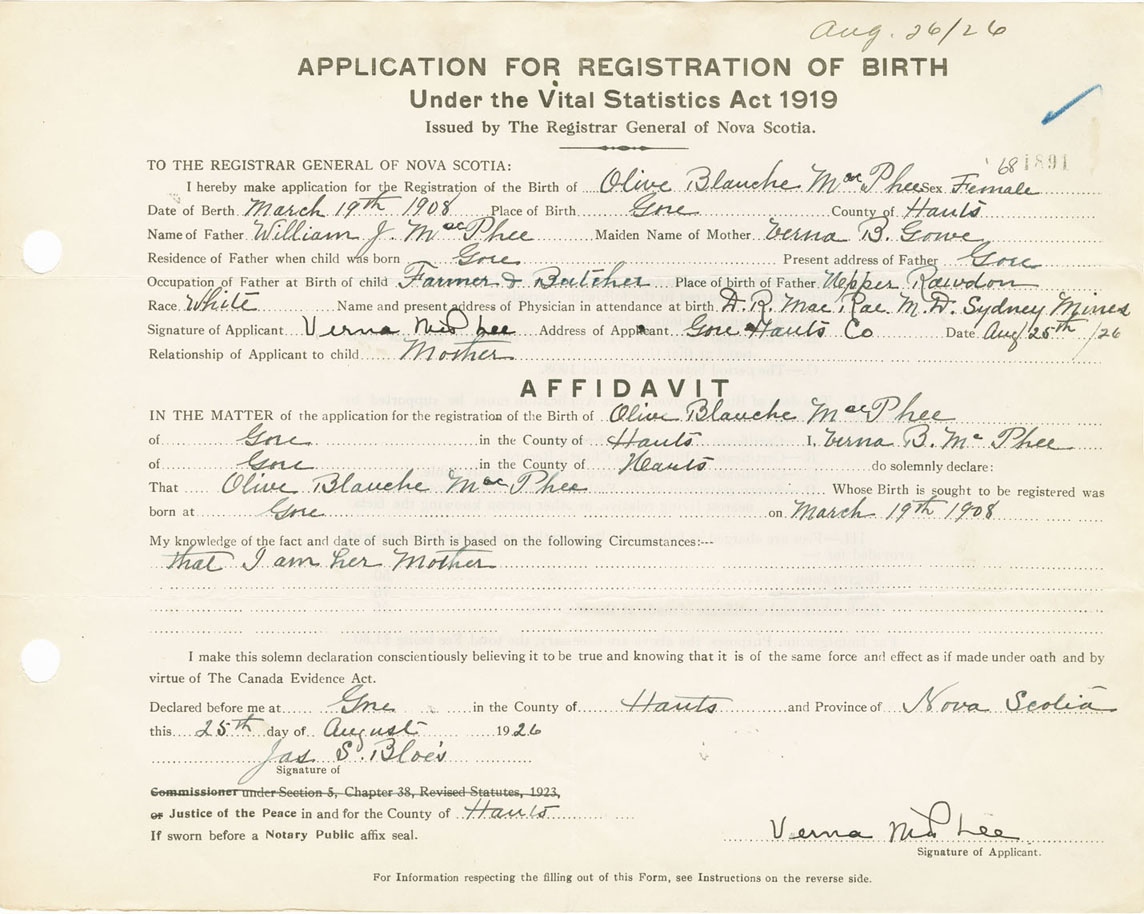 Aug. 26/26
APPLICATION FOR REGISTRATION OF BIRTH
Under the Vital Statistics Act 1919
Issued by The Registrar General of Nova Scotia.
'68 1891
TO THE REGISTRAR GENERAL OF NOVA SCOTIA:
I hereby make application for the Registration of the Birth of Olive Blanche MacPhee Sex Female
Date of Berth March 19th 1908 Place of Birth Gore County of Hants
Name of Father William J. MacPhee Maiden Name of Mother Verna B. Gowe
Residence of Father when child was born Gore Present address of Father Gore
Occupation of Father at Birth of child Farmer & Butcher Place of birth of Father Upper Rawdon
Race White Name and present address of Physician in attendance at birth D. R. Mac Rae M. D. Sydney Mines
Signature of Applicant Verna McPhee Address of Applicant Gore Hants Co Date Aug 25th /26
Relationship of Applicant to child Mother
AFFIDAVIT
IN THE MATTER of the application for the registration of the Birth of Olive Blanche MacPhee
of Gore in the County of Hants I, Verna B. McPhee
of Gore in the County of Hants do solemnly declare:
That Olive Blanche MacPhee Whose Birth is sought to be registered was
born at Gore on March 19th 1908
My knowledge of the fact and date of such Birth is based on the following Circumstances:---
that I am her Mother
I make this solemn declaration conscientiously believing it to be true and knowing that it is of the same force and effect as if made under oath and by
virtue of The Canada Evidence Act.
Declared before me at Gore in the County of Hants and Province of Nova Scotia
this 25th day of August 1926
Jas S. Blois
Signature of
Commissioner under Section 5, Chapter 38, Revised Statutes, 1923,
or Justice of the Peace in and for the County of Hants
If sworn before a Notary Public affix seal.
Verna McPhee
Signature of Applicant.
For Information respecting the filling out of this Form, see Instructions on the reverse side.